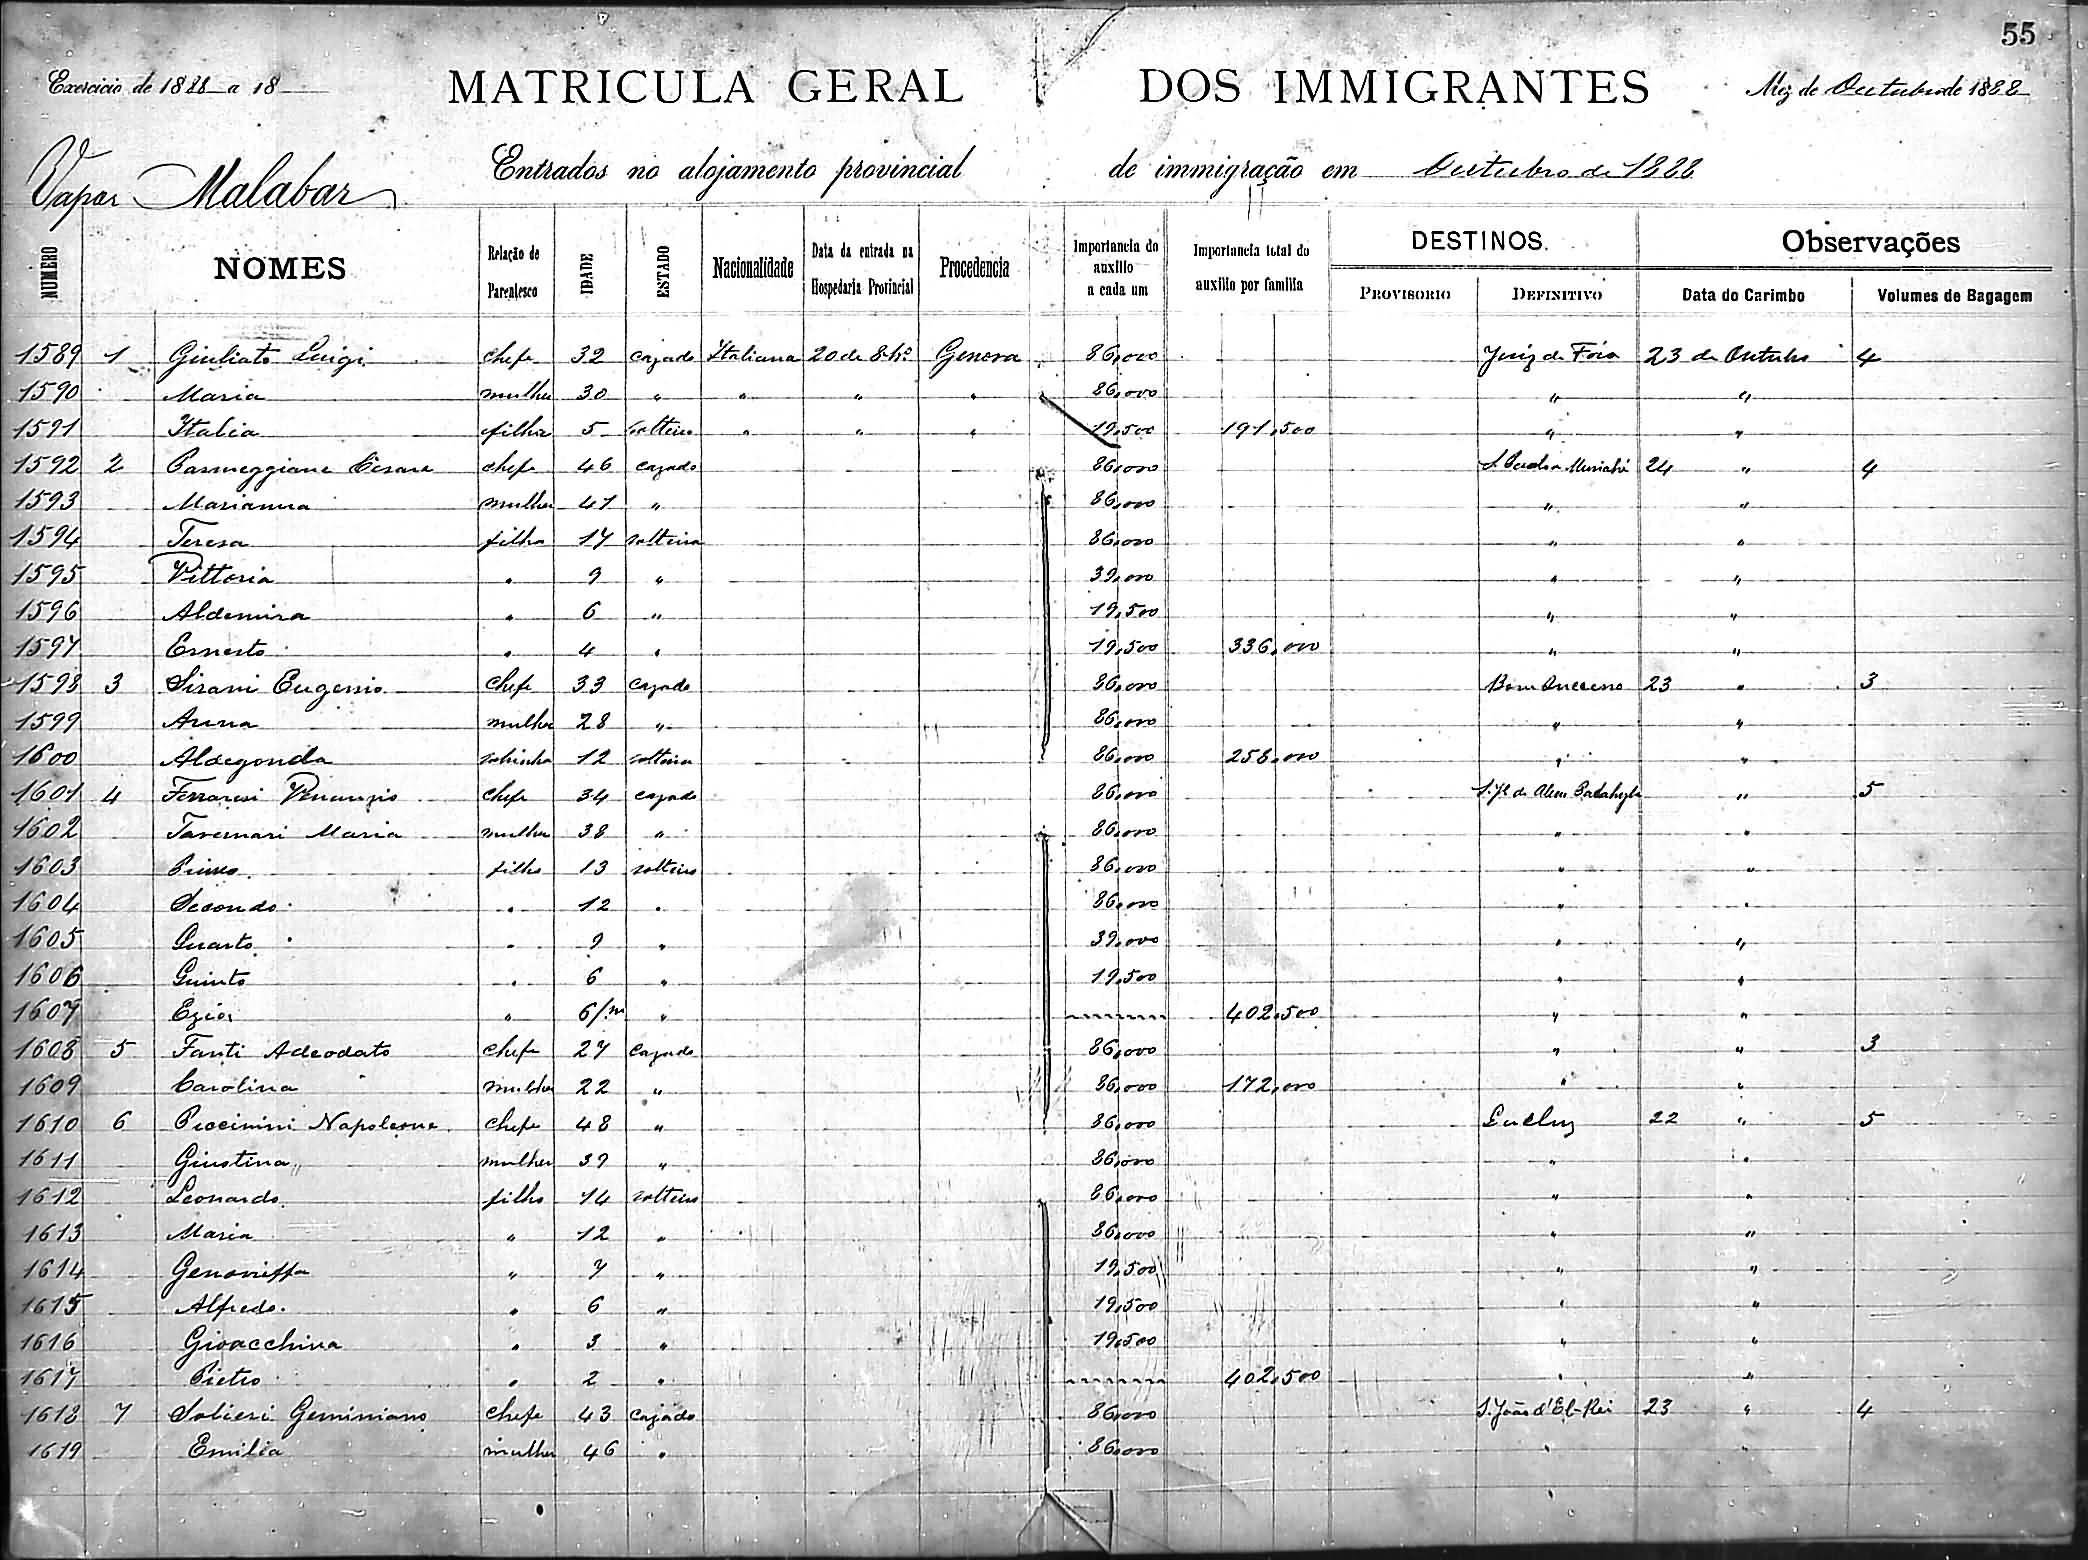 55
Exercicio de 1888 a 18
MATRICULA GERAL DOS IMMIGRANTES
Mez de Outubro de 1888
Vapor Malabar
Entrados no alojamento provincial de immigração em Outubro de 1888
NUMERO NOMES Relação de Parentesco IDADE ESTADO Nacionalidade Data da entrada na Hospedaria Provincial Procedencia Importancia do auxilio a cada um Importancia total do auxilio por familia DESTINOS. PROVISORIO DEFINITIVO Observações Data do Carimbo Volumes de Bagagem
1589 1 Giuliato Luigi chefe 32 cazado Italiana 20 de 8bro Genova 86,000 Juiz de Fóra 23 de Outubro 4
1590 Maria mulher 30 " " " " 86,000 " "
1591 Italia filha 5 solteira " " " 19,500 191,500 " "
1592 2 Parmeggiane Cesare chefe 46 cazado 86,000 24 " 4
1593 Marianna mulher 41 " 86,000 " "
1594 Teresa filha 17 solteira 86,000 " "
1595 Vittoria " 9 " 39,000 " "
1596 Aldemira " 6 " 19,500 " "
1597 Ernesto " 4 " 19,500 336,000 " "
1598 3 Sirani Eugenio chefe 33 cazado 86,000 Bom Successo 23 " 3
1599 Anna mulher 28 " 86,000 " "
1600 Aldegonda sobinha 12 solteira 86,000 258,000 " "
1601 4 Ferraresi Venanzio chefe 34 cazado 86,000 " 5
1602 Tavernari Maria mulher 38 " 86,000 " "
1603 Primo filho 13 solteiro 86,000 " "
1604 Secondo " 12 " 86,000 " "
1605 Quarto " 9 " 39,000 " "
1606 Quinto " 6 " 19,500 " "
1607 Ezio " 6/m " 402,500 " "
1608 5 Fanti Adeodato chefe 27 cazado 86,000 " " 3
1609 Carolina mulher 22 " 86,000 172,000 " "
1610 6 Piccinini Napoleone chefe 48 " 86,000 22 " 5
1611 Giustina mulher 39 " 86,000 " "
1612 Leonardo filho 14 solteiro 86,000 " "
1613 Maria " 12 " 86,000 " "
1614 Genovieffa " 7 " 19,500 " "
1615 Alfredo " 6 " 19,500 " "
1616 Gioacchina " 3 " 19,500 " "
1617 Pietro " 2 " 402,500 " "
1618 7 Solieri Geminiano chefe 43 cazado 86,000 S. João d'El-Rei 23 " 4
1619 Emilia mulher 46 " 86,000 " "